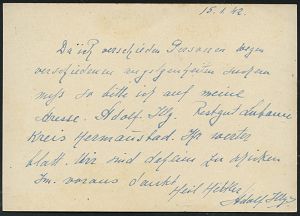 15.1.42.
Da ich verschieden Personen wegen
verschiedenen angelegenheiten suchen
muß so bitte ich auf meine
Adresse. Adolf Illg. Restgut
Kreis Hermannsbad. Ihr wertes
blatt. mir und zu schicken
Im. voraus dankt
Heil Hitler
Adolf Illg